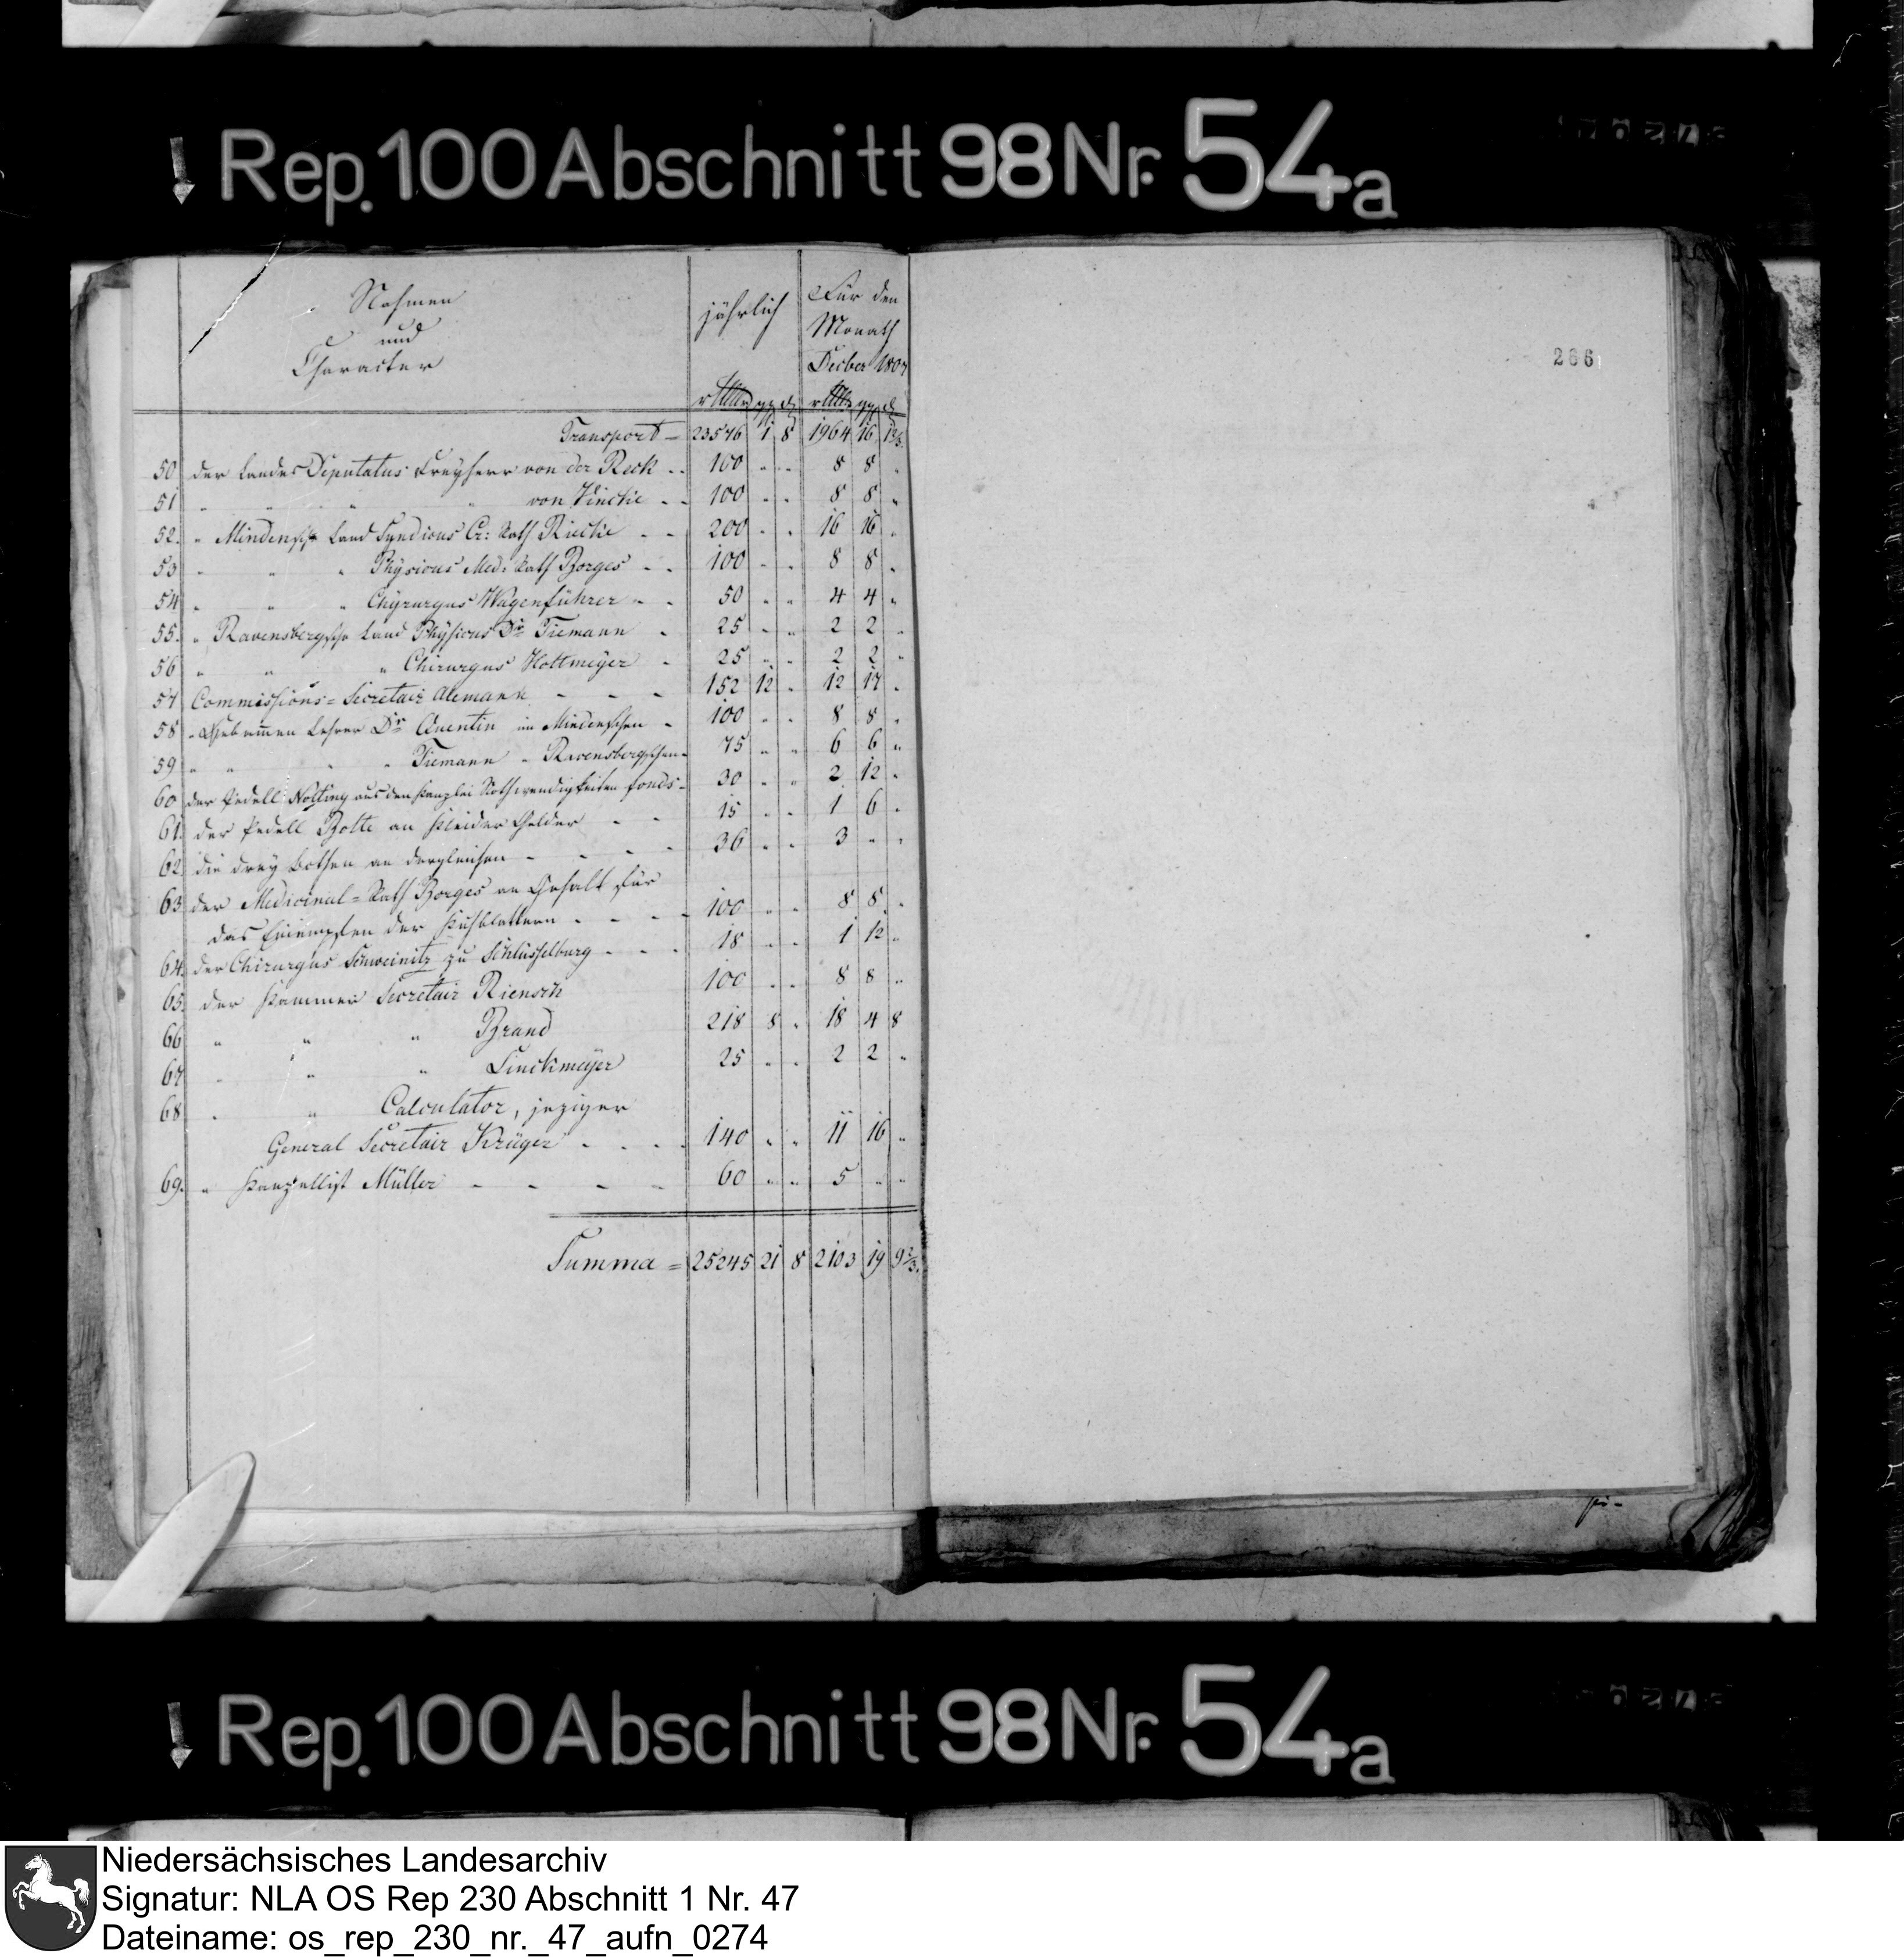 Rep. 100 Abschnitt 98 Nr. 54a
266
Nahmen
und
Character
jährlich
Für den
Monath
Decber 1807
rthlr ggr d rthlr ggr d
Transport = 23576 1 8 1964 16 1 2/3.
50 der Landes Deputatus Freyherr von der Reck - - 100 " " 8 8 "
51 " " " von Vincke - - 100 " " 8 8 "
52. " Mindensche Land Syndicus Cr: Rath Riecke - - 200 " " 16 16 "
53 " " " Physicus Med: Rath Borges - - 100 " " 8 8 "
54 " " " Chyrurgus Wagenführer - - 50 " " 4 4 "
55. " Ravensbergsche Land Physicus Dr Tiemann - 25 " " 2 2 "
56 " " " Chirurgus Hottmeyer - 25 " " 2 2 "
57 Commissions = Secretair Alemann - - - 152 12 " 12 17 "
58 " Hebammen Lehrer Dr Quentin im Mindenschen - 100 " " 8 8 "
59 " " " " Tiemann " Ravensbergschen - 75 " " 6 6 "
60 der Pedell Nolting aus den Kanzlei Nothwendigkeiten fonds - 30 " " 2 12 "
61. der Pedell Bolte an Kleider Gelder - - 15 " " 1 6 "
62 die drey Bothen an dergleichen - - - - 36 " " 3 " "
63 der Medicinal = Rath Borges an Gehalt für
das Einimpfen der Kuhblattern - - - - 100 " " 8 8 "
64. der Chirurgus Schweinitz zu Schlüsselburg - - - 18 " " 1 12 "
65. der Kammer Secretair Riensch 100 " " 8 8 "
66 " " " Brand 218 8 " 18 4 8
67 " " " Linckmeyer 25 " " 2 2 "
68 " " Calculator, jeziger
General Secretair Krüger - - - - 140 " " 11 16 "
69. " Kanzellist Müller - - - - 60 " " 5 " "
Summa = 25245 21 8 2103 19 9 2/3.
Rep. 100 Abschnitt 98 Nr. 54a
Niedersächsisches Landesarchiv
Signatur: NLA OS Rep 230 Abschnitt 1 Nr. 47
Dateiname: os_rep_230_nr._47_aufn_0274